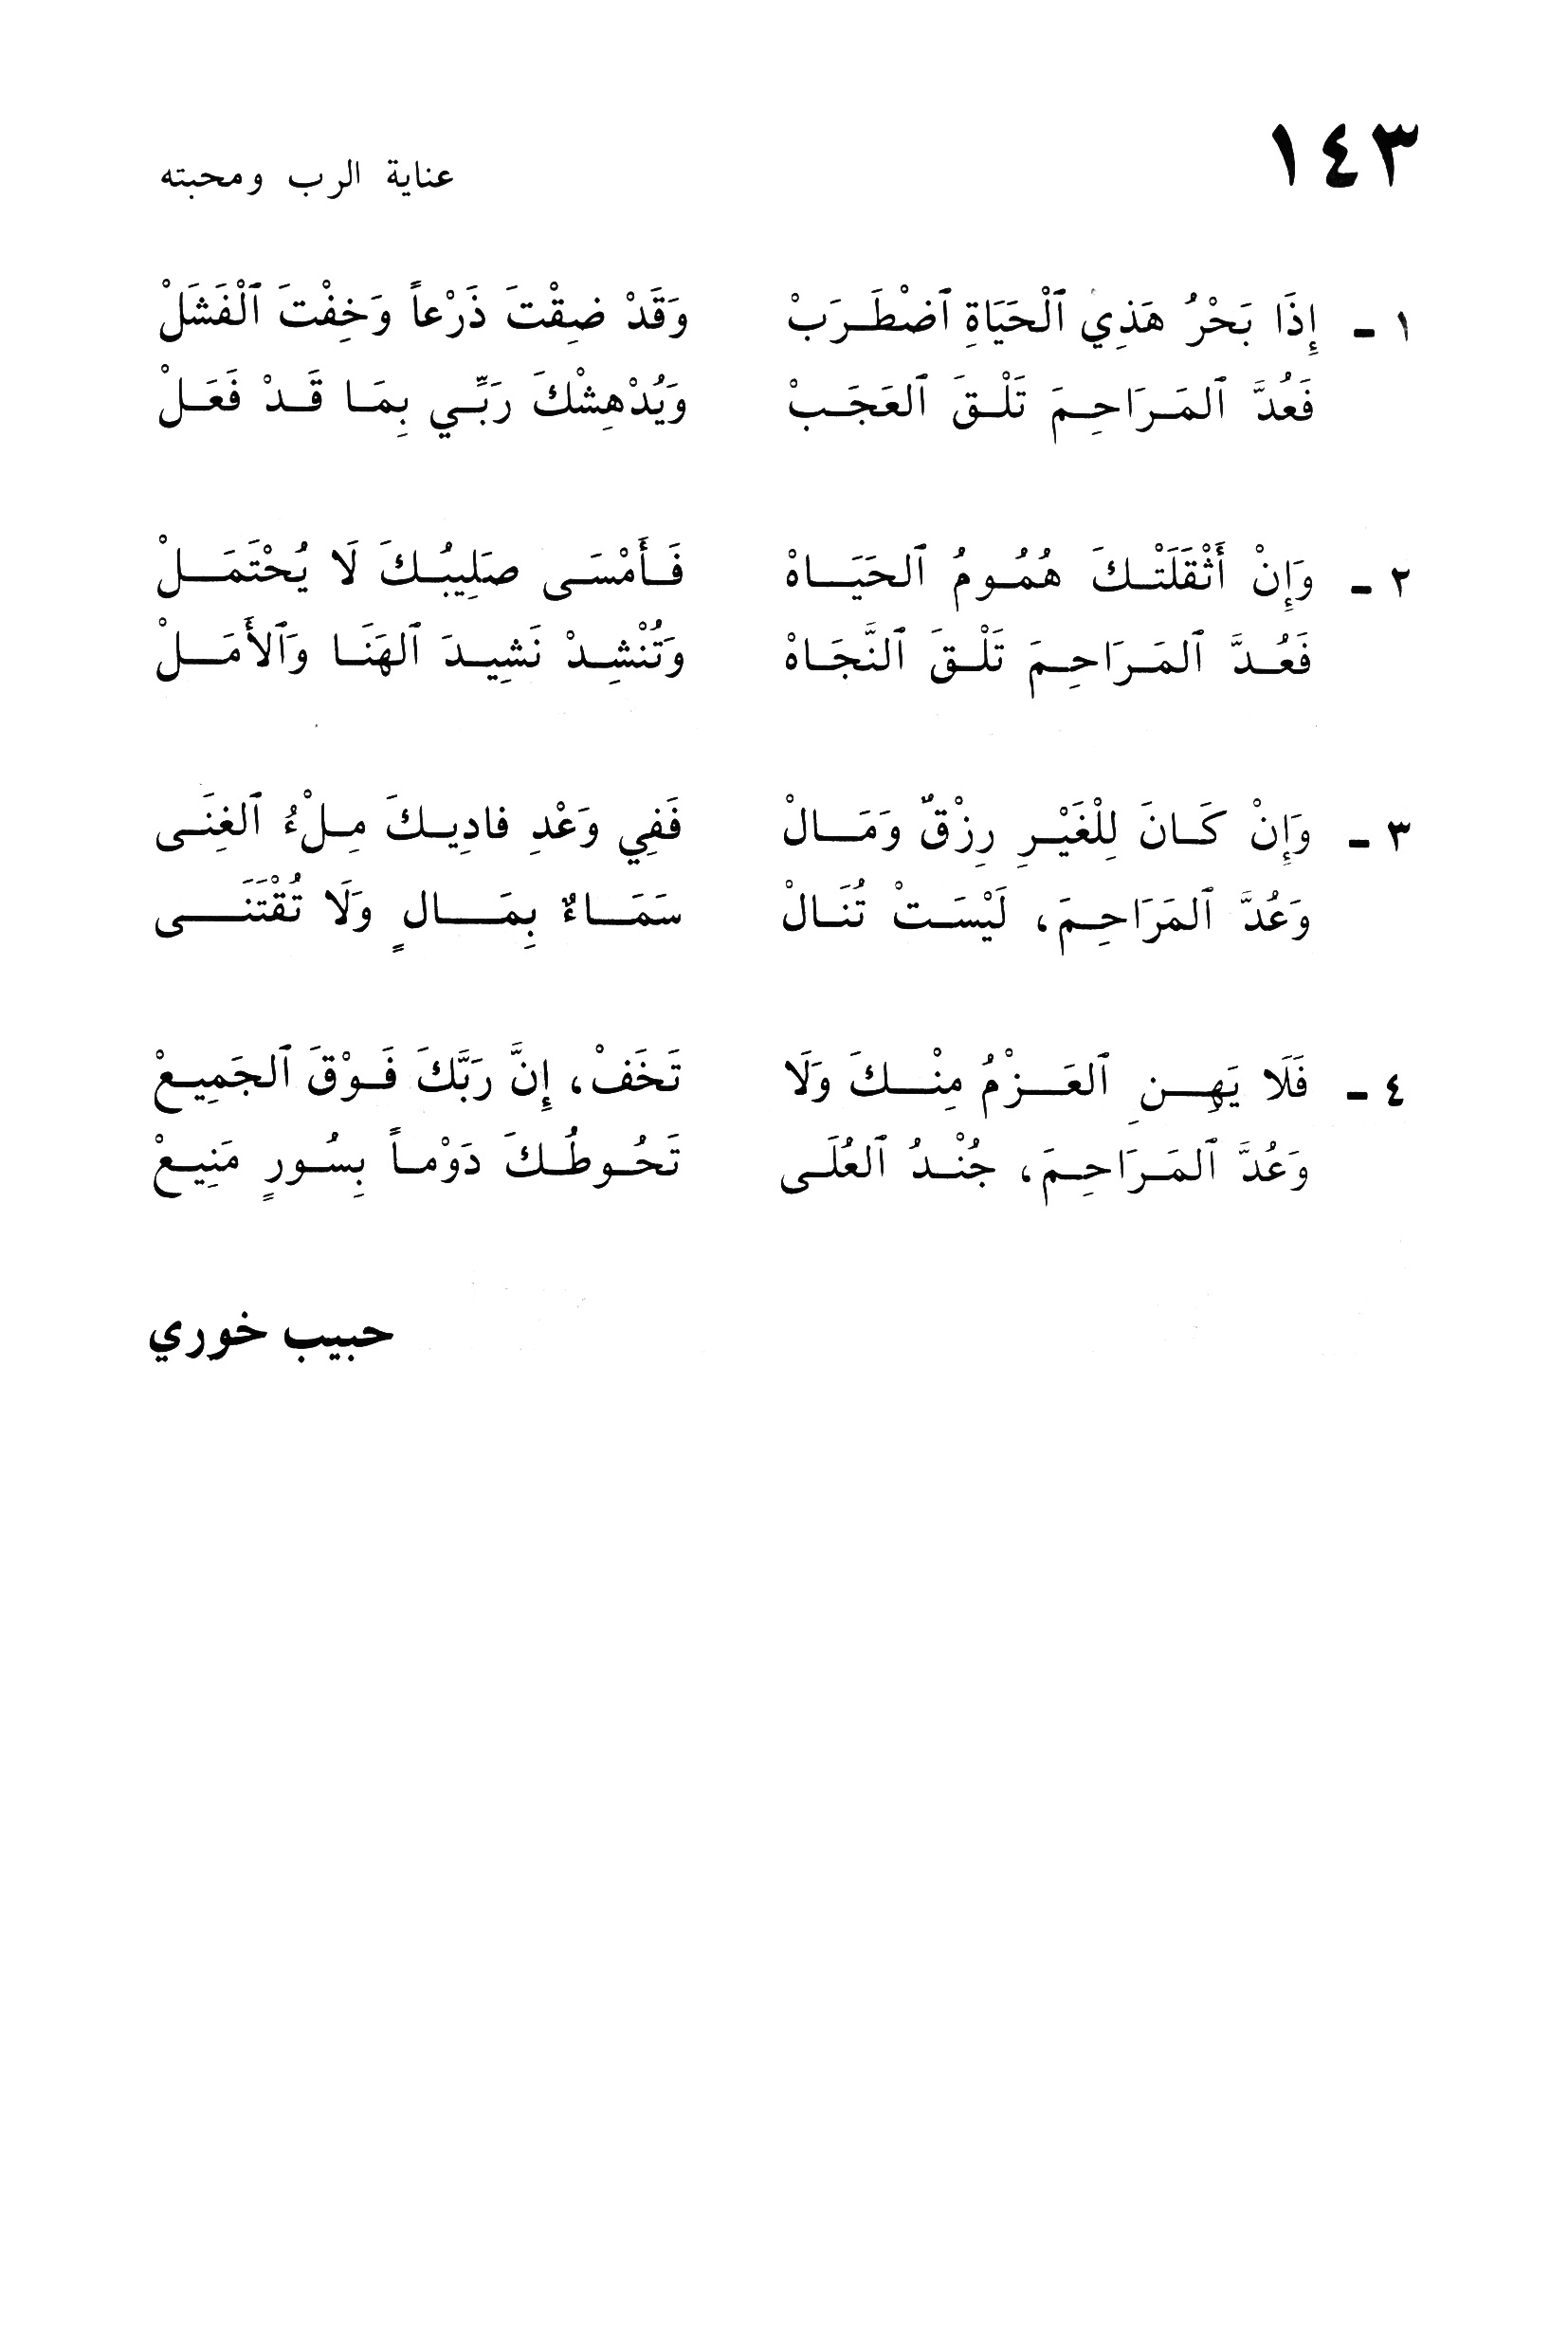 ١٤٣
عناية الرب ومحبته
١ - إِذَا بَحْرُ هَذِي ٱلْحَيَاةِ ٱضْطَرَبْ وَقَدْ ضِقْتَ ذَرْعاً وَخِفْتَ ٱلْفَشَلْ
فَعُدَّ ٱلمَرَاحِمَ تَلْقَ ٱلعَجَبْ وَيُدْهِشْكَ رَبِّي بِمَا قَدْ فَعَلْ
٢ - وَإِنْ أَثْقَلَتْكَ هُمُومُ ٱلحَيَاهْ فَأَمْسَى صَلِيبُكَ لَا يُحْتَمَلْ
فَعُدَّ ٱلمَرَاحِمَ تَلْقَ ٱلنَّجَاهْ وَتُنْشِدْ نَشِيدَ ٱلهَنَا وَٱلأَمَلْ
٣ - وَإِنْ كَانَ لِلْغَيْرِ رِزْقٌ وَمَالْ فَفِي وَعْدِ فادِيكَ مِلْءُ ٱلغِنَى
وَعُدَّ ٱلمَرَاحِمَ، لَيْسَتْ تُنَالْ سَمَاءٌ بِمَالٍ وَلَا تُقْتَنَى
٤ - فَلَا يَهِنِ ٱلعَزْمُ مِنْكَ وَلَا تَخَفْ، إِنَّ رَبَّكَ فَوْقَ ٱلجَمِيعْ
وَعُدَّ ٱلمَرَاحِمَ، جُنْدُ ٱلعُلَى تَحُوطُكَ دَوْماً بِسُورٍ مَنِيعْ
حبيب خوري